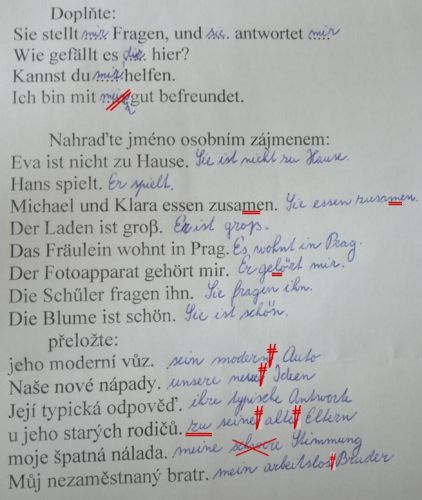 Doplňte:
Sie stellt mir Fragen, und sie antwortet mir
Wie gefällt es dir hier?
Kannst du mir helfen.
Ich bin mit gut befreundet.
Nahraďte jméno osobním zájmenem:
Eva ist nicht zu Hause. Sie ist nicht zu Hause.
Hans spielt. Er spielt.
Michael und Klara essen zusamen. Sie essen zusamen.
Der Laden ist groβ. Er ist groβ.
Das Fräulein wohnt in Prag. Es wohnt in Prag.
Der Fotoapparat gehört mir. Er gehört mir.
Die Schűler fragen ihn. Sie fragen ihn.
Die Blume ist schön. Sie ist schön.
přeložte:
jeho moderní vůz. sein modern Auto
Naše nové nápady. unsere neue Ideen
Její typická odpověď. ihre typische Antworte
u jeho starých rodičů. zu seine alte Eltern
moje špatná nálada. meine Stimmung
Můj nezaměstnaný bratr. mein arbeitslos Bruder